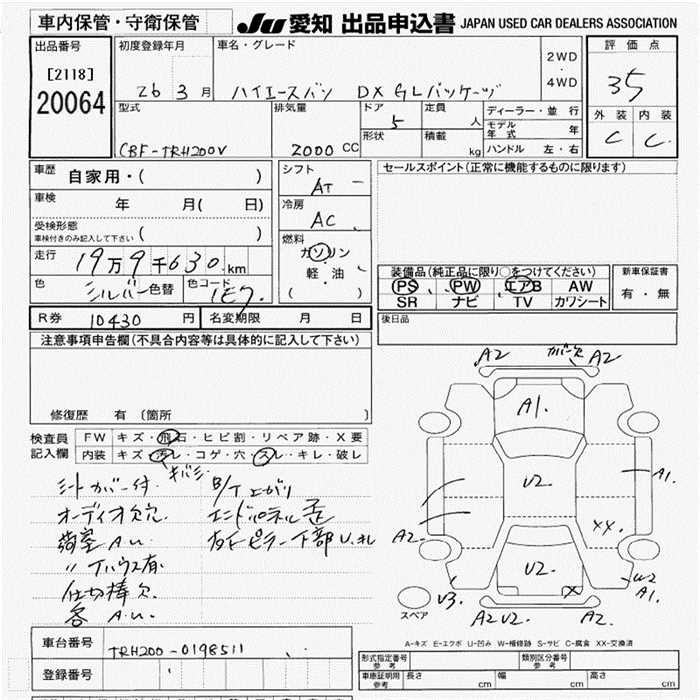 車内保管・守衛保管
JU 愛知 出品申込書 JAPAN USED CAR DEALERS ASSOCIATION
出品番号
[2118]
20064
初度登録年月
26 3 月
車名・グレード
ハイエースバン DX GLパッケージ
2WD
・
4WD
評価点
3.5
外装 内装
C C
型式
CBF-TRH200V
排気量
2000 CC
ドア
5
形状
定員
人
積載
kg
ディーラー・並行
モデル年式 年
ハンドル 左・右
車歴 自家用・( )
車検 年 月( 日)
受検形態
車検付きのみ記入して下さい ( )
走行 19万9千630 km
色 シルバー 色替 色コード 1E7
シフト
AT
冷房
AC
燃料
ガソリン
軽・油
( )
セールスポイント(正常に機能するものに限ります)
装備品(純正品に限り○をつけてください)
PS PW エアB AW
SR ナビ TV カワシート
新車保証書
有・無
後日品
R券 10430 円 名変期限 月 日
注意事項申告欄(不具合内容等は具体的に記入して下さい)
修復歴 有 〔箇所 〕
検査員記入欄
FW キズ・飛石・ヒビ割・リペア跡・X要
内装 キズ・汚レ・コゲ・穴・スレ・キレ・破レ
キバミ
シートカバー付
オーディオ欠穴
荷室 A.U.
〃 Tハウス有
仕切棒欠
各 A.U.
B/T上がり
エンドパネル歪
左Eピラー下部U.札
A2 ガバ欠 A2
A1.
U2
A1.
A2
XX.
U2.
X
U3.
W2
A1.
A2 U2 A2
スペア
A-キズ E-エクボ U-凹み W-補修跡 S-サビ C-腐食 XX-交換済
車台番号 TRH200-0198511
登録番号
形式指定番号 参考
類別区分番号 参考
車庫証明用 参考 長さ cm 幅 cm 高さ cm